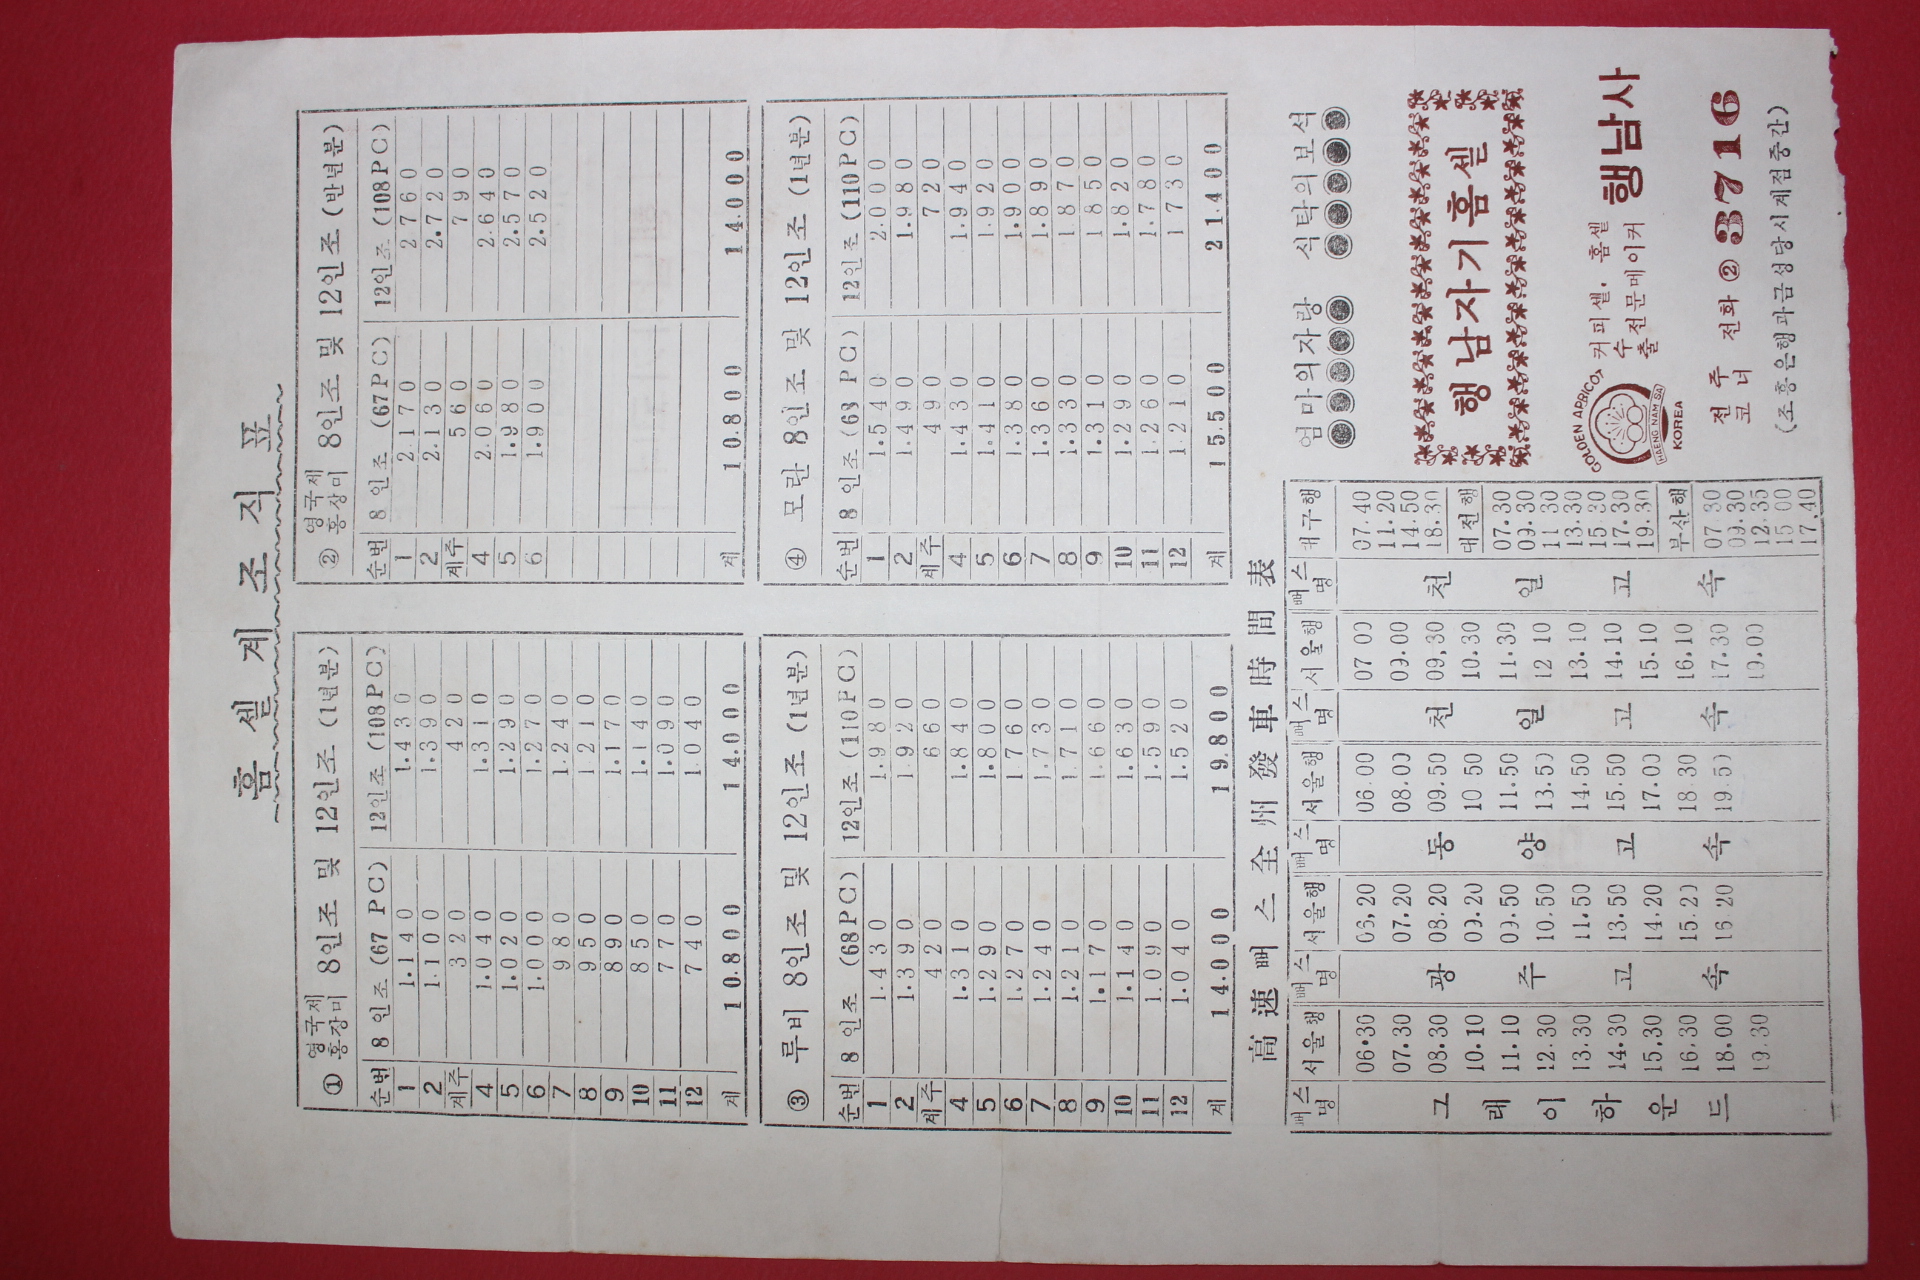 홈셀계조직표
① 영국제 홍장미 8인조 및 12인조 (1년분)
순번 8 인 조 (67 PC) 12인조 (108PC)
1 1.140 1.430
2 1.100 1.390
계주 320 420
4 1.040 1.310
5 1.020 1.290
6 1.000 1.270
7 980 1.240
8 950 1 210
9 890 1.170
10 850 1.140
11 770 1.090
12 740 1 040
계 10.800 14.000
② 영국제 홍장미 8인조 및 12인조 (반년분)
순번 8 인 조 (67PC) 12인조 (108PC)
1 2.170 2.760
2 2.130 2.720
계주 560 790
4 2.060 2.640
5 1.980 2.570
6 1.900 2.520
계 10.800 14.000
③ 루비 8인조 및 12인조 (1년분)
순번 8 인조 (68PC) 12인조 (110PC)
1 1.430 1.980
2 1.390 1.920
계주 420 660
4 1.310 1.840
5 1.290 1.800
6 1.270 1 760
7 1.240 1.730
8 1.210 1.710
9 1.170 1.660
10 1.140 1.630
11 1.090 1.590
12 1.040 1.520
계 14.000 19.800
④ 모란 8인조 및 12인조 (1년분)
순번 8 인조 (68 PC) 12인조 (110PC)
1 1.540 2.000
2 1.490 1.980
계주 490 720
4 1.430 1.940
5 1.410 1.920
6 1.380 1.900
7 1.360 1.890
8 1.330 1 870
9 1.310 1 850
10 1.290 1.820
11 1.260 1.780
12 1 210 1 730
계 15.500 21.400
高速뻐스全州發車時間表
뻐스명 서울행 뻐스명 서울행 뻐스명 서울행 뻐스명 서울행 뻐스명 대구행
그레이하운드
06.30
07.30
08.30
10.10
11.10
12.30
13.30
14.30
15.30
16.30
18.00
19.30
광주고속
06.20
07.20
08.20
09.20
09.50
10.50
11.50
13.50
14.20
15.20
16.20
동양고속
06.00
08.00
09.50
10 50
11.50
13.50
14.50
15.50
17.00
18.30
19.50
천일고속
07 00
09.00
09.30
10.30
11.30
12 10
13.10
14.10
15.10
16.10
17.30
19.00
천일고속
07.40
11.20
14.50
18.30
대전행
07.30
09.30
11 30
13.30
15.30
17.30
19.30
부산행
07 30
09.30
12.35
15 00
17.40
엄마의자랑 식탁의보석
행남자기홈셀
GOLDEN APRICOT
HAENG NAM SA
KOREA
커피셀. 홈셀
수출전문메이커 행남사
전주코너 전화 ② 3716
(조흥은행과금성당시계점중간)